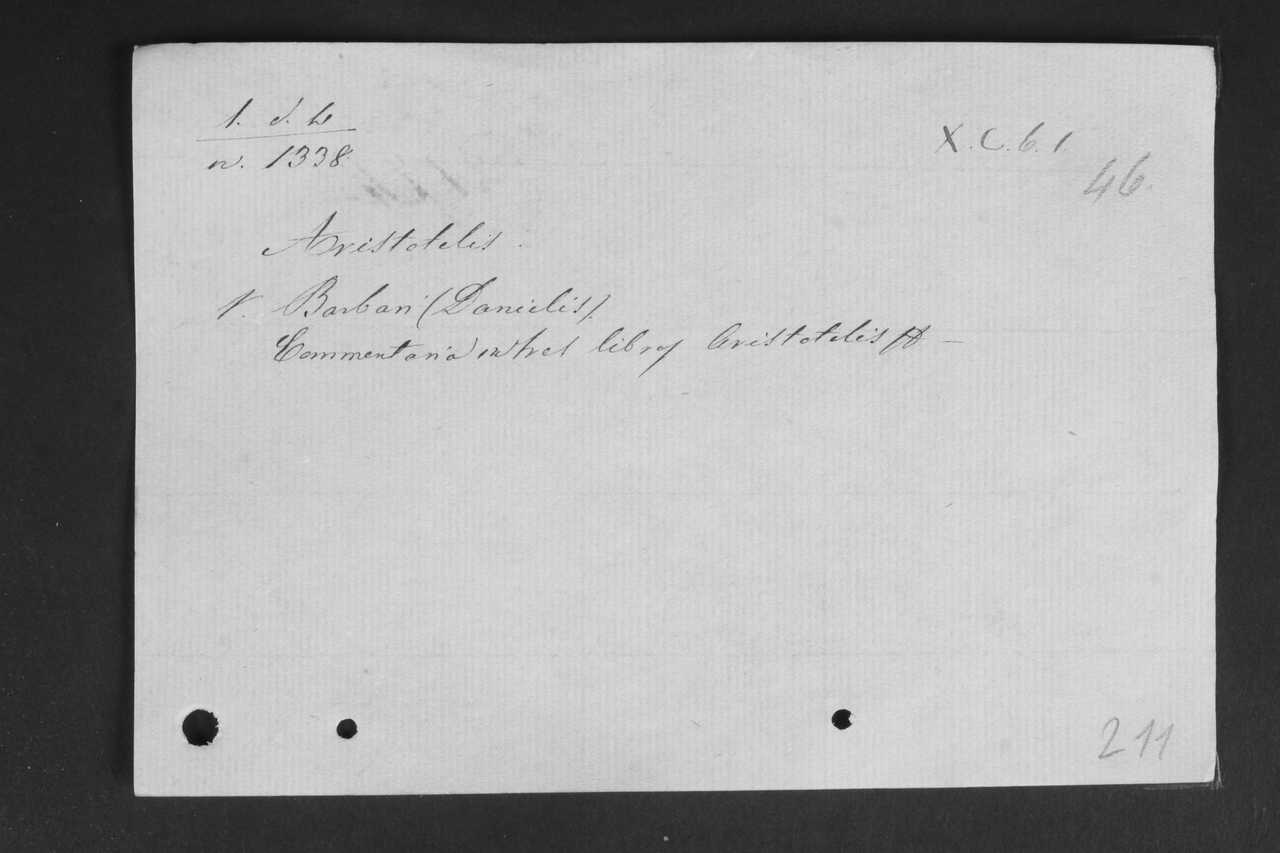 1. d. 4
n. 1338
X.C.6.1
46.
Aristotelis.
V. Barbari (Danielis).
Commentaria in tres libros Aristotelis
211